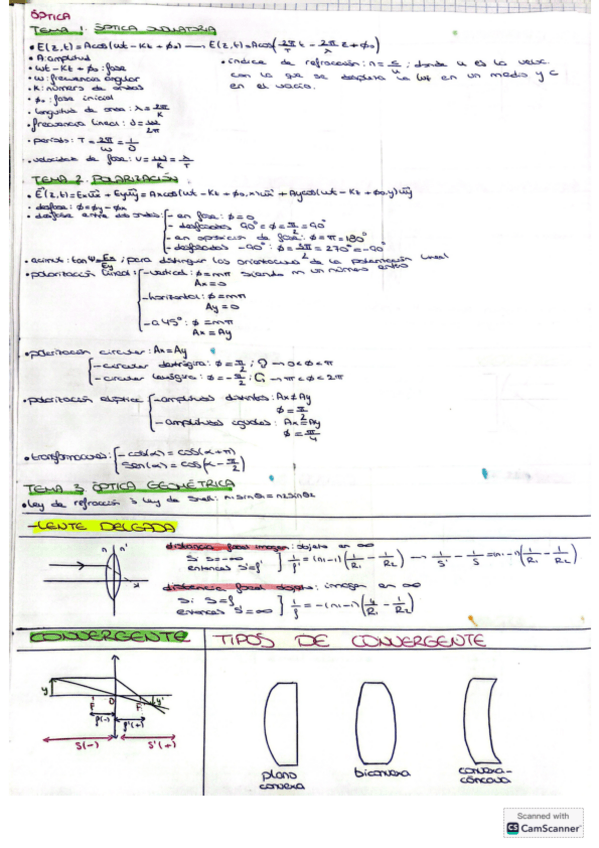 ÓPTICA
TEMA 1. ÓPTICA ONDULATORIA
• E(z,t) = Acos(ωt - Kz + ϕ₀) → E(z,t) = Acos(2π/T t - 2π/λ z + ϕ₀)
• A: amplitud
• ωt - Kz + ϕ₀: fase
• ω: frecuencia angular
• K: número de ondas
• ϕ₀: fase inicial
• longitud de onda: λ = 2π/K
• frecuencia lineal: ν = ω/2π
• periodo: T = 2π/ω = 1/ν
• velocidad de fase: v = ω/K = λ/T
• índice de refracción: n = c/u; donde u es la veloc.
con la que se desplaza la luz en un medio y c
en el vacío.
TEMA 2. POLARIZACIÓN
• desfase: ϕ = ϕy - ϕx
• desfase entre dos ondas:
- en fase: ϕ = 0
- desfasadas 90° = ϕ = π/2 = 90°
- en oposición de fase: ϕ = π = 180°
- desfasadas -90°: ϕ = 3π/2 = 270° = -90°
• acimut: tan Ψ = Ex/Ey; para distinguir las orientaciones de la polarización lineal
• polarización lineal:
- vertical: ϕ = mπ siendo m un número entero
Ax = 0
- horizontal: ϕ = mπ
Ay = 0
- a 45°: ϕ = mπ
Ax = Ay
• polarización circular: Ax = Ay
- circular dextrógira: ϕ = π/2; → 0 < ϕ < π
- circular levógira: ϕ = -π/2; → π < ϕ < 2π
• polarización elíptica:
- amplitudes distintas: Ax ≠ Ay
ϕ = π/2
- amplitudes iguales: Ax = Ay
ϕ = π/4
• transformaciones:
- cos(α) = cos(α + π)
sen(α) = cos(α - π/2)
TEMA 3. ÓPTICA GEOMÉTRICA
• Ley de refracción o Ley de Snell: n₁ sinθ₁ = n₂ sinθ₂
- LENTE DELGADA
n n'
distancia focal imagen: objeto en ∞
si s = -∞
entonces s' = f'
1/f' = (n-1)(1/R₁ - 1/R₂) → 1/s' - 1/s = (n-1)(1/R₁ - 1/R₂)
distancia focal objeto: imagen en ∞
si s = f
entonces s' = ∞
1/f = -(n-1)(1/R₁ - 1/R₂)
CONVERGENTE
TIPOS DE CONVERGENTE
y
F O F' y'
f(-) f'(+)
s(-) s'(+)
plano
convexa
biconvexa
convexa-
cóncava
Scanned with
CS CamScanner